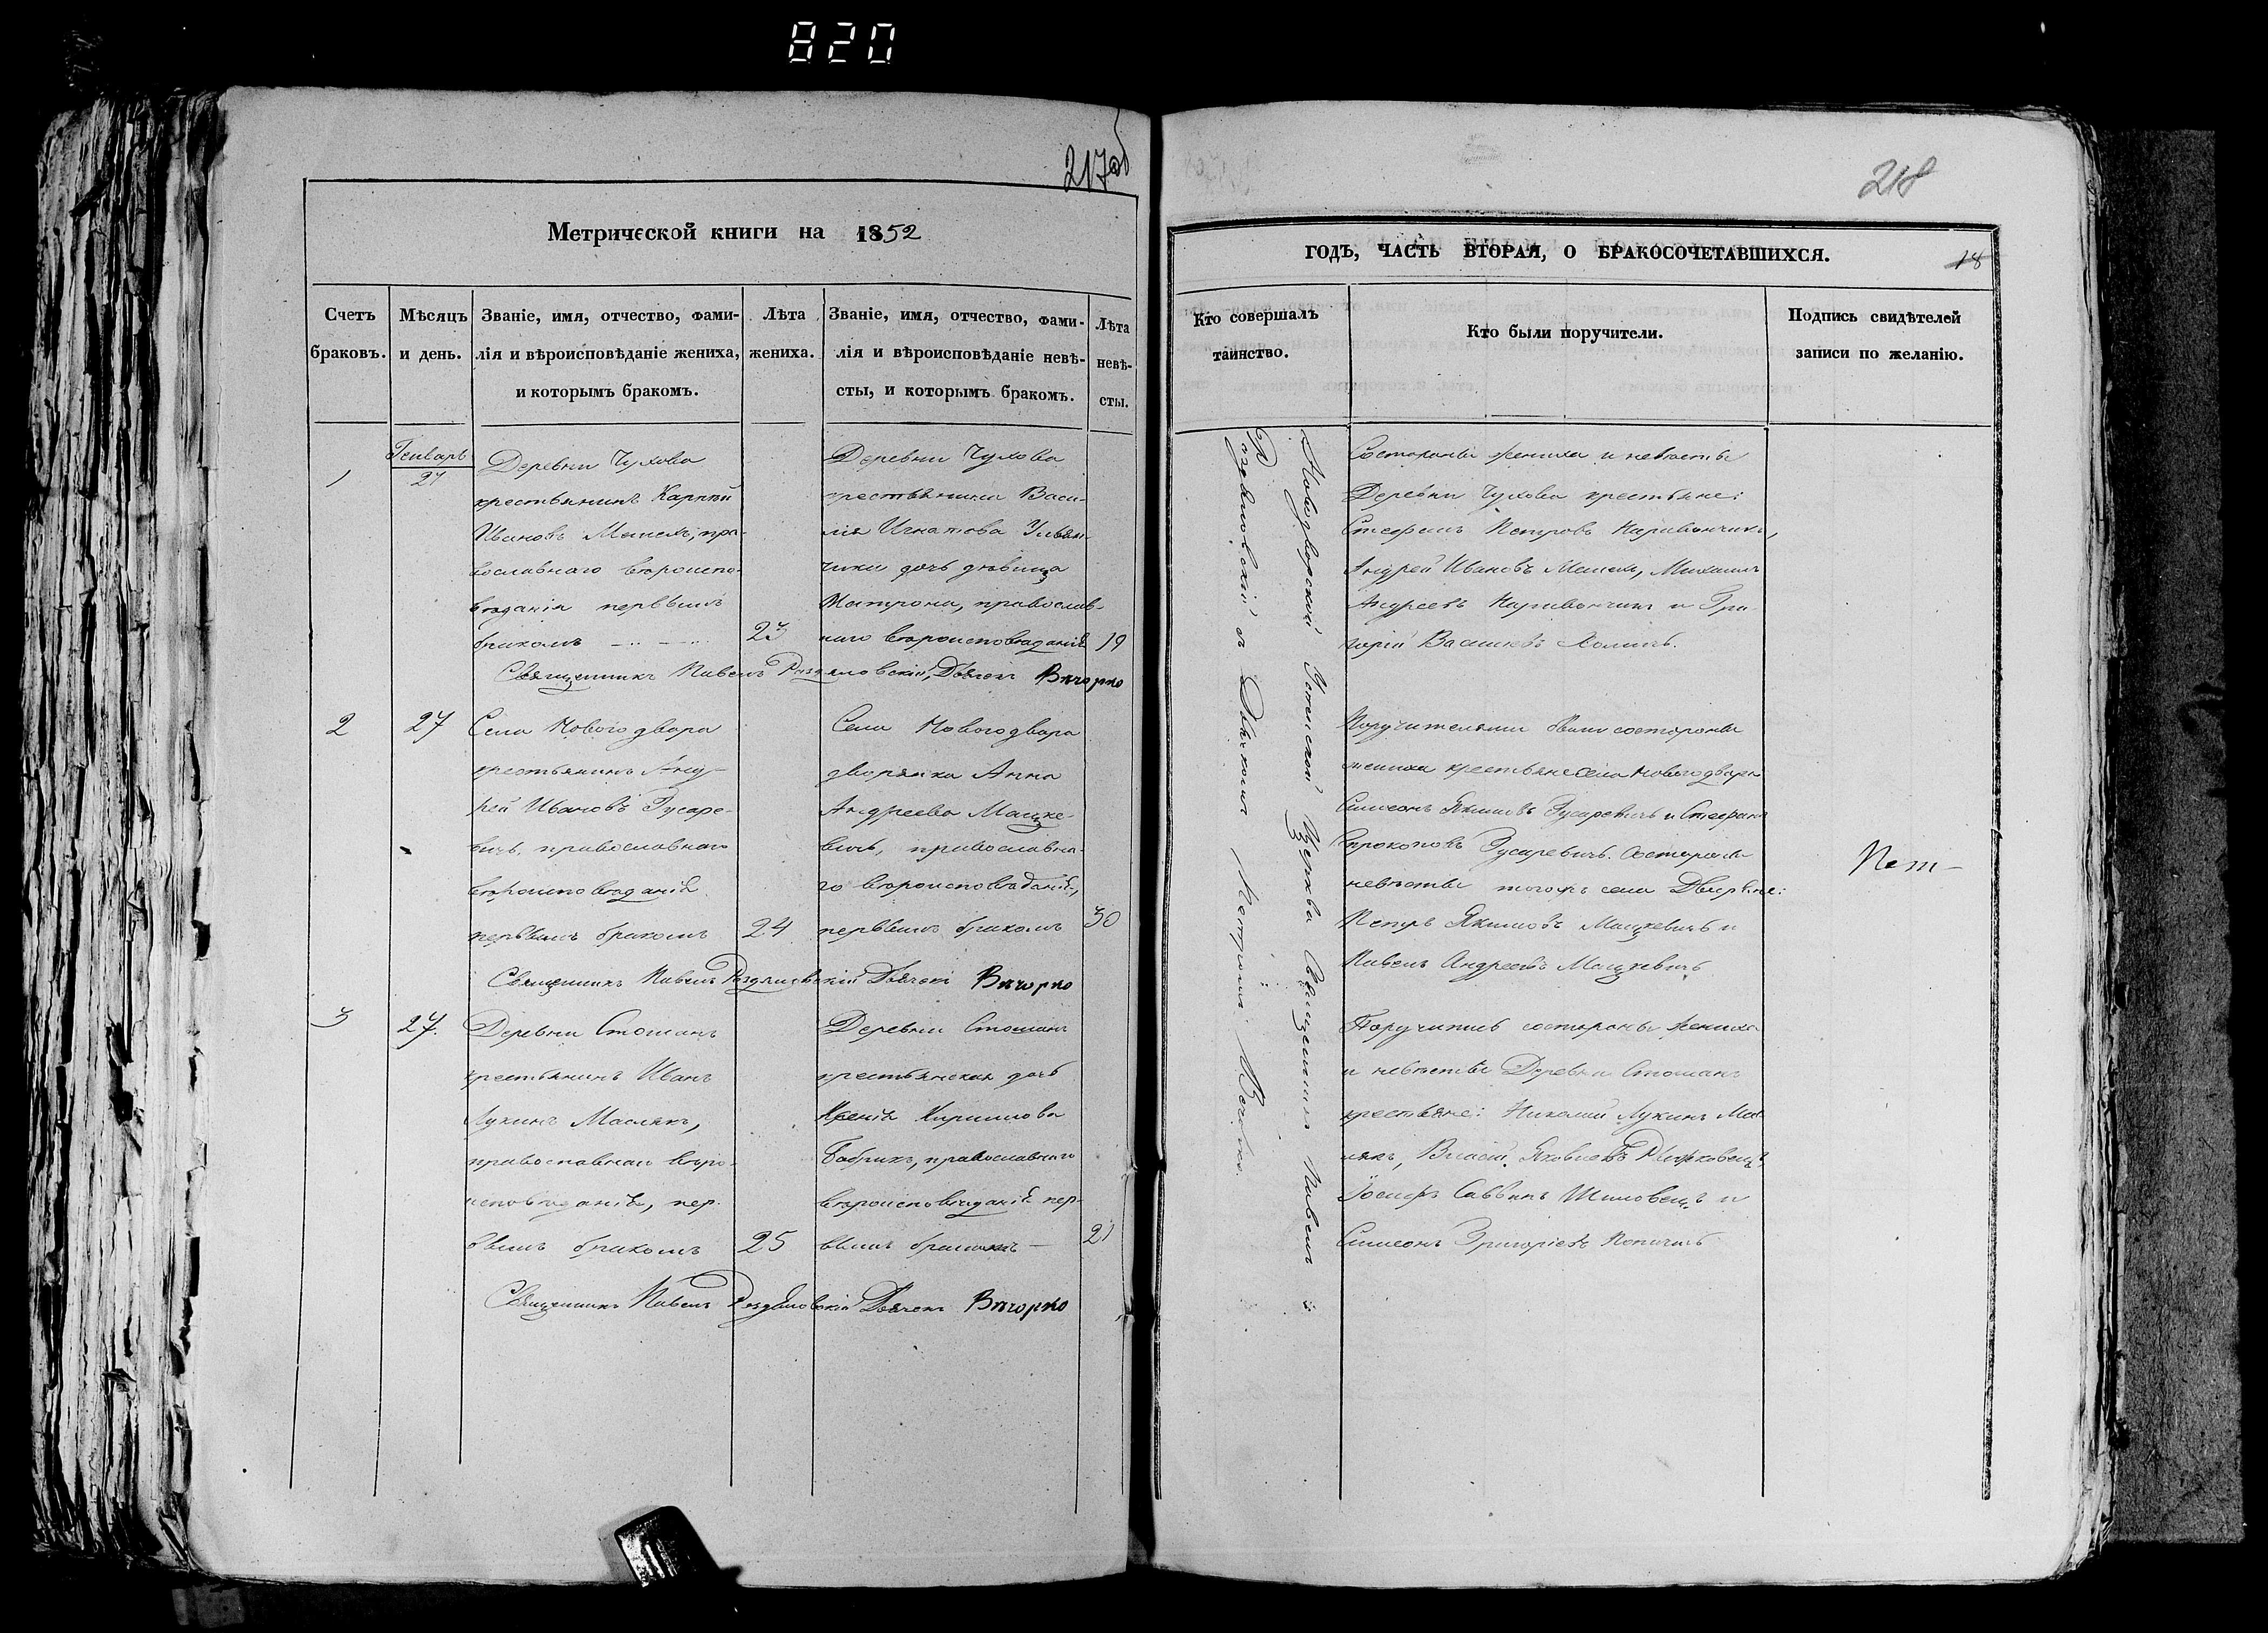 820
217об
Метрической книги на 1852
Счетъ браковъ.
Мѣсяцъ и день.
Званіе, имя, отчество, фами-
лія и вѣроисповѣданіе жениха,
и которымъ бракомъ.
Лѣта
жениха.
Званіе, имя, отчество, фами-
лія и вѣроисповѣданіе невѣ-
сты, и которымъ бракомъ.
Лѣта
невѣ-
сты.
1
Генварь
27
Деревни Чухова
крестьянинъ Карпъ
Ивановъ пра-
вославнаго вѣроиспо-
вѣданія первымъ
бракомъ
23
Деревни Чухова
крестьянина Васи-
лія Игнатова
дочь дѣвица
Матрона, православ-
наго вѣроисповѣданія
19
Священникъ Павелъ Дьячекъ Вечорко
2
27
Села Нового двора
крестьянинъ Анд-
рей Ивановъ Гусаре-
вичъ, православнаго
вѣроисповѣданія
первымъ бракомъ
24
Села Нового двора
дворянка Анна
Андреева Мацке-
вичъ, православна-
го вѣроисповѣданія,
первымъ бракомъ
30
Священникъ Павелъ Дьячекъ Вечорко
3
27.
Деревни Стошанъ
крестьянинъ Иванъ
Лукинъ Маслякъ,
православнаго вѣро-
исповѣданія, пер-
вымъ бракомъ
25
Деревни Стошанъ
крестьянская дочь
Ксенія Кирилова
Бобрикъ, православнаго
вѣроисповѣданія пер-
вымъ бракомъ
21
Священникъ Павелъ Дьячекъ Вечорко
218
ГОДЪ, ЧАСТЬ ВТОРАЯ, О БРАКОСОЧЕТАВШИХСЯ.
18
Кто совершалъ
таинство.
Кто были поручители.
Подпись свидѣтелей
записи по желанію.
Новодворской Успенской Церкви Священникъ Павелъ
съ Дьячкомъ Петромъ
Состороны жениха и невѣсты
Деревни Чухова крестьяне:
Стефанъ Петровъ
Андрей Ивановъ Михаилъ
Андреевъ и Гри-
горій
Поручителями были состороны
жениха крестьяне села Нового двора
Симеонъ Якимовъ Гусаревичъ и Стефанъ
Прокоповъ Гусаревичъ. Состороны
невѣсты тогожъ села Дворяне:
Петръ Якимовъ Мацкевичъ и
Павелъ Андреевъ Мацкевичъ.
состороны жениха
и невѣсты Деревни Стошанъ
крестьяне: Николай Лукинъ Мас-
лякъ, Власій Яковлевъ
Іосифъ Саввинъ Шиловецъ и
Симеонъ Григорьевъ